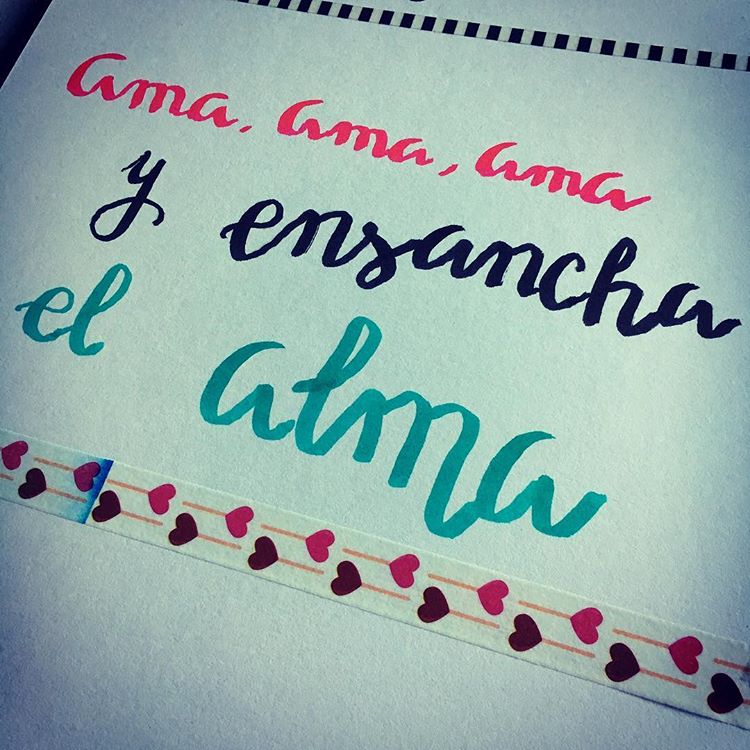 ama, ama, ama
y ensancha
el alma